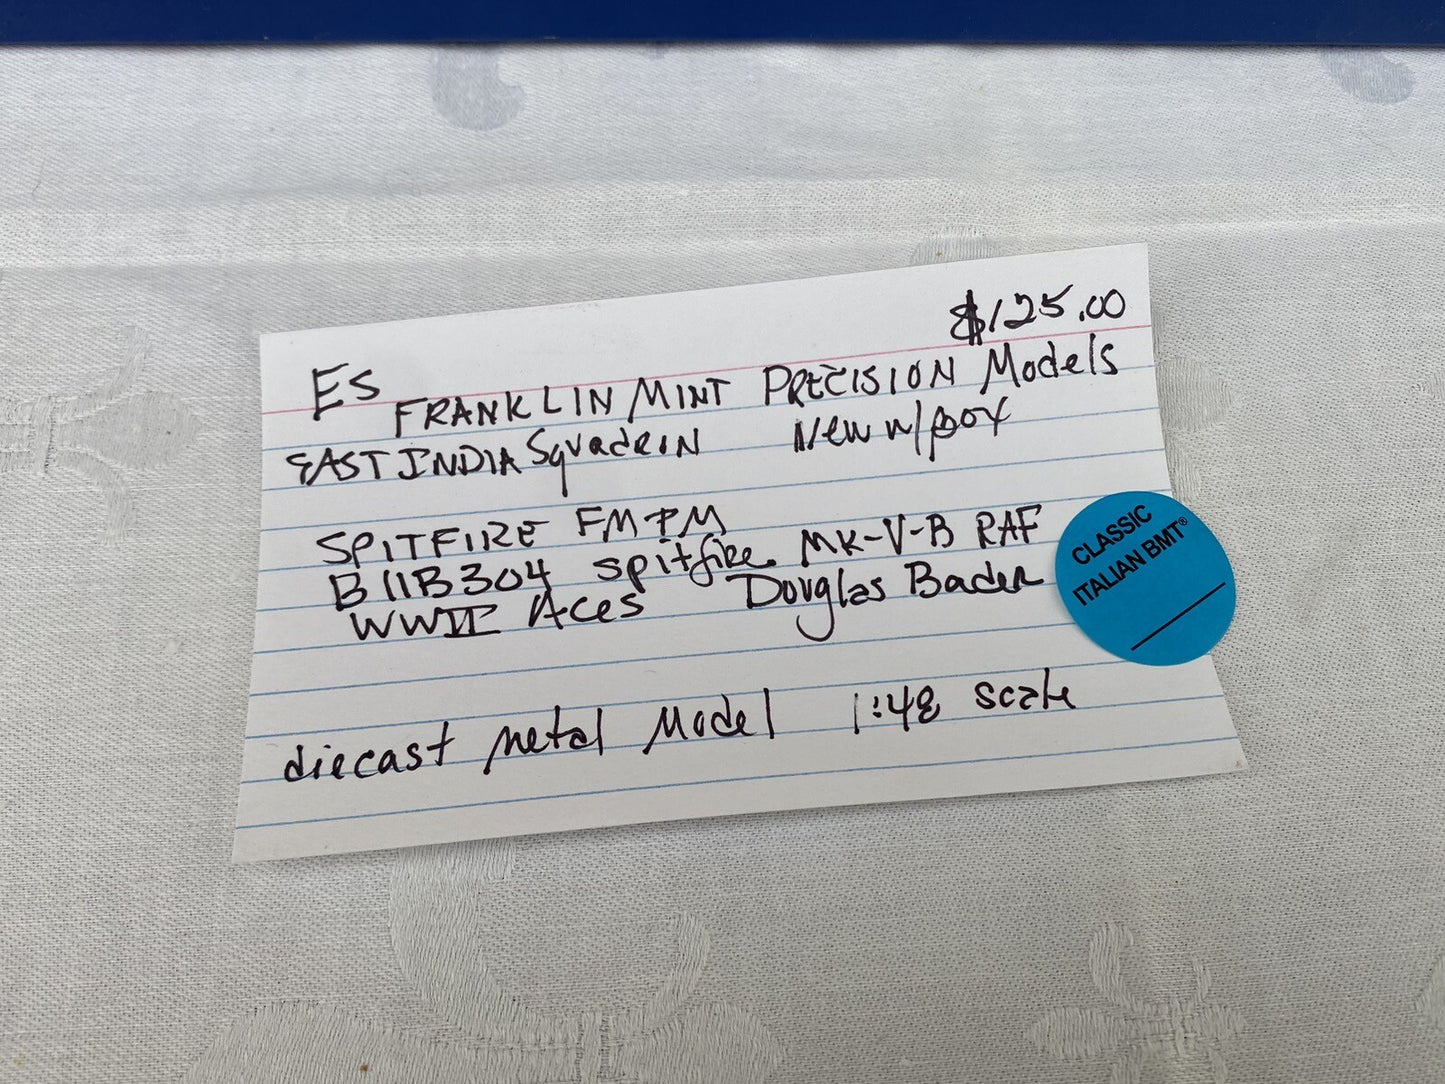 $125.00
ES FRANKLIN MINT PRECISION Models
EAST INDIA Squadron New w/box
SPITFIRE FMPM
B11B304 spitfire MK-V-B RAF
WWII Aces Douglas Bader
diecast metal Model 1:48 scale
CLASSIC
ITALIAN BMT®